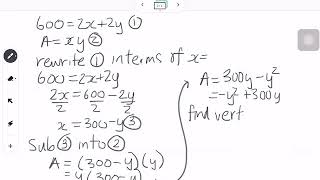 600=2x+2y ①
A=xy ②
rewrite ① interms of x=
600=2x+2y
2x/2=600/2-2y/2
x=300-y ③
Sub ③ into ②
A=(300-y)(y)
=y(300-y)
A=300y-y²
=-y²+300y
find vert